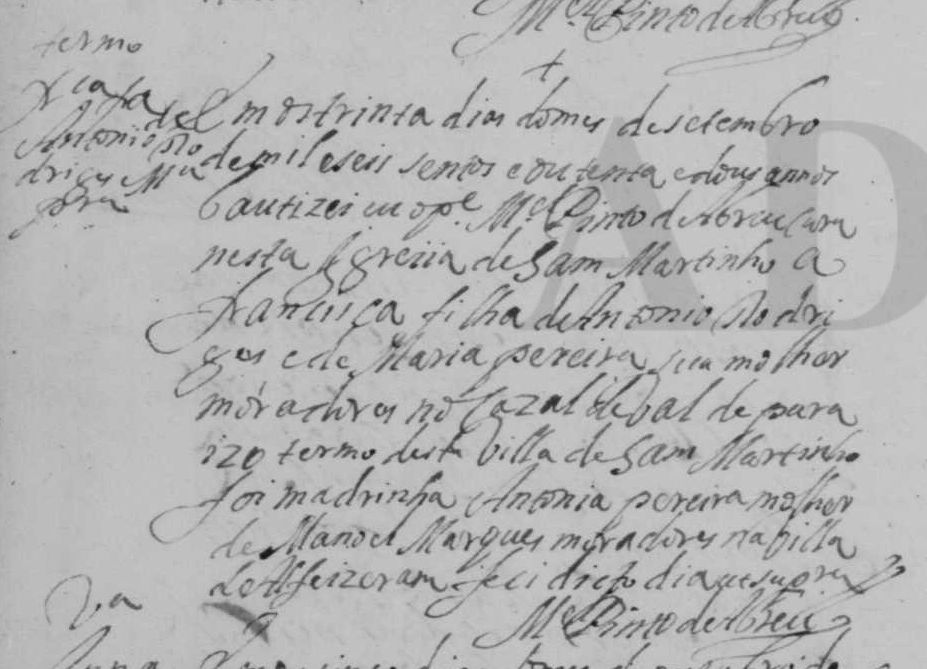 Mel Pinto de Abreu
termo
frca fa de
Antonio Ro
drigus Ma
pra
Emos trinta dias do mes de setembro
de mil e seis sentos e outenta e dous annos
bautizei eu o pe Mel Pinto de Abreu Cura
nesta Igreiia de Sam Martinho a
francisca filha de Antonio Rodri
gus e de Maria pereira sua molher
moradores no Cazal de Val de para
izo termo desta Villa de Sam Martinho
foi madrinha Antonia pereira molher
de Manoel Marques moradores na villa
de Alfeizeram dia ut supra
Mel Pinto de Abreu
Va
AD